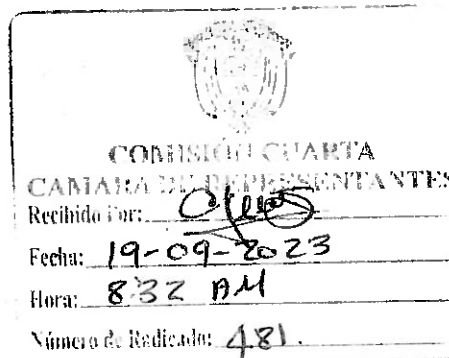 COMISIÓN CUARTA
CAMARA DE REPRESENTANTES
Recibido Por:
Fecha: 19-09-2023
Hora: 8:32 AM
Número de Radicado: 481.